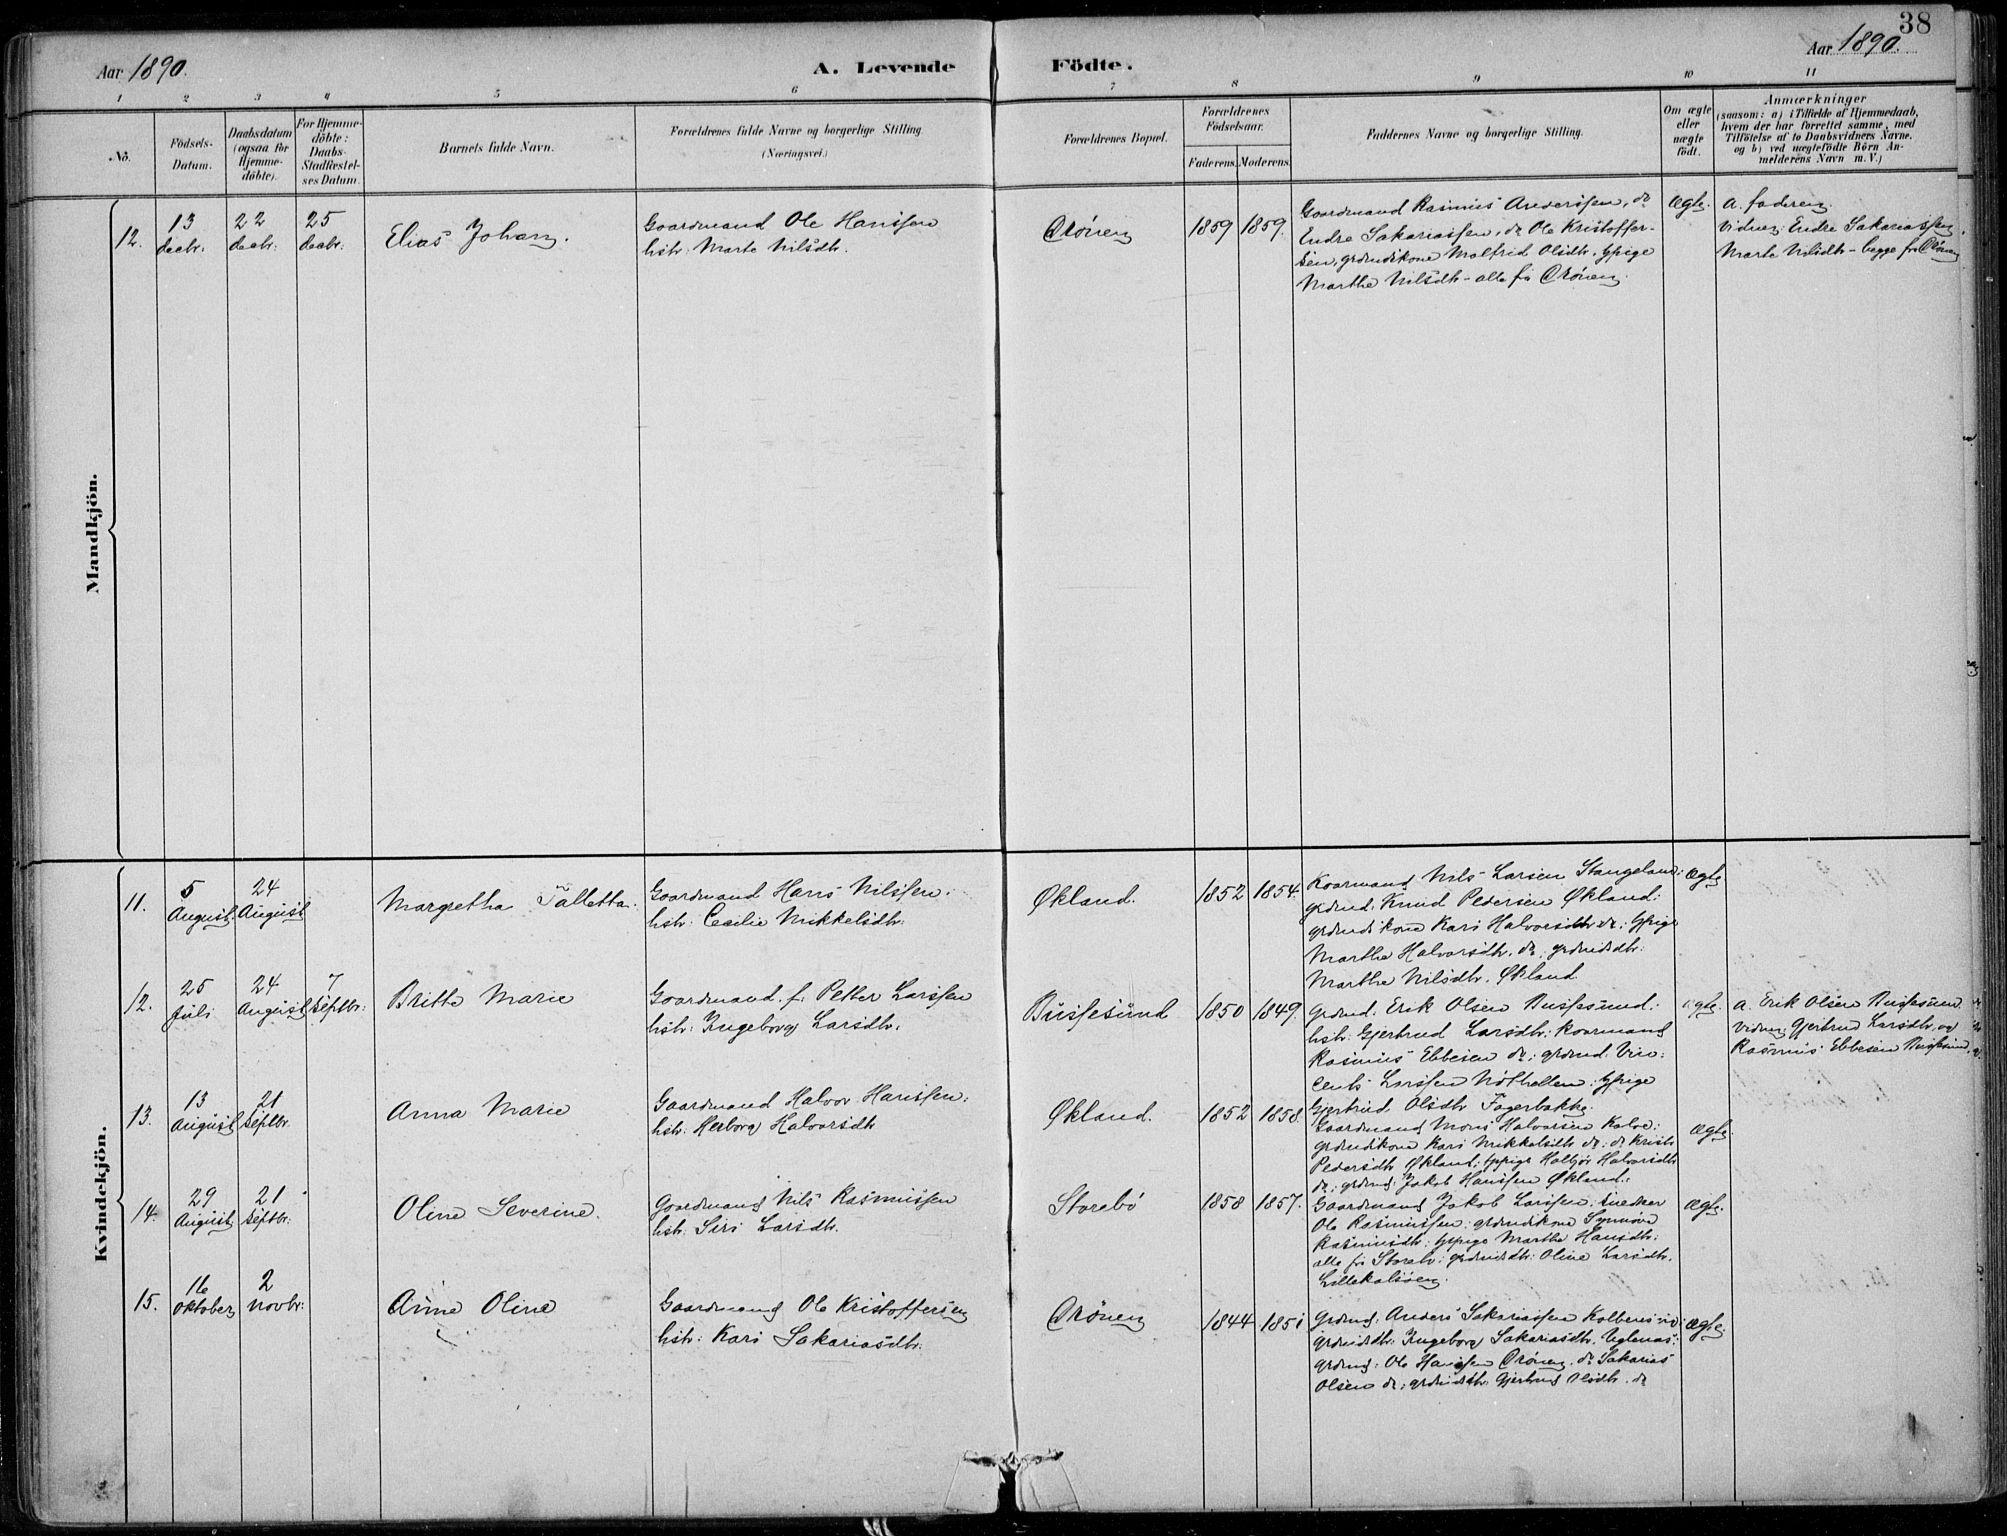 38
Aar 1890.
A. Levende
Födte.
Aar 1890.
1 2 3 4 5 6 7 8 9 10 11
No.
Födsels-
Datum.
Daabsdatum
(ogsaa for
Hjemme-
döbte).
For Hjemme-
döbte:
Daabs-
Stadfæstel-
ses Datum.
Barnets fulde Navn.
Forældrenes fulde Navne og borgerlige Stilling.
(Næringsvei.)
Forældrenes Bopæl.
Forældrenes
Födselsaar.
Faderens. Moderens.
Faddernes Navne og borgerlige Stilling.
Om ægte
eller
uægte
født.
Anmærkninger
(saasom: a) i Tilfælde af Hjemmedaab,
hvem der har forrettet samme, med
Tilföielse af to Daabsvidners Navne.
og b) ved uægtefödte Börn An-
melderens Navn m. V.)
Mandkjön.
12.
13
decbr.
22
decbr:
25
decbr:
Elias Johan.
Gaardmand Ole Hanssen
hstr: Marte Nilsdtr.
Drönen
1859 1859.
Gaardmand Rasmus Anderssen, do
Endre Sakariassen, do Ole Kristoffer-
sen, grdmdskone Malfrid Olsdtr, ypige
Marthe Nilsdtr - alle fra Drönen.
Ægte.
a. faderen.
Vidner: Endre Sakariassen,
Marte Nilsdtr - begge fra Drönen
Kvindekjön.
11.
5
August
24
August
Margretha Talletta.
Gaardmand Hans Nilssen.
hstr: Cecilie Mikkelsdtr.
Økland.
1852 1854.
Kaarmand Nils Larsen Stangeland:
grdmd: Knud Pedersen Økland:
grdmdskone Kari Halvorsdtr do: ypige
Marthe Halvorsdtr. do: grdmdsdtr:
Marthe Nilsdtr. Økland
Ægte
12.
25
Juli
24
August
7
Septbr:
Britte Marie
Gaardmand. f. Petter Larssen
hstr: Ingeborg Larsdtr.
Bussesund
1850 1849.
grdmd: Erik Olsen Bussesund:
hstr: Gjertrud Larsdtr: kaarmand
Rasmus Ebbesen do: grdmd. Vin-
cents Larssen Nöthollen: ypige
Gjertrud Olsdtr Fagerbakke.
Ægte.
a. Erik Olsen Bussesund
Vidner: Gjertrud Larsdtr. og
Rasmus Ebbesen Bussesund.
13.
13
August
21
Septbr.
Anna Marie
Gaardmand Halvor Hanssen:
hstr: Herborg Halvorsdtr
Økland.
1852 1858.
Gaardmand Mons Halvorsen Kalve:
grdmdskone Kari Mikkelsdtr do: do Kristi
Pedersdtr Økland: ypige Halbjör Halvorsdtr
do: grdmd: Jakob Hanssen Økland:
Ægte.
14.
29
August
21
Septbr:
Oline Severine.
Gaardmand Nils Rasmussen
hstr: Siri Larsdtr.
Storebö
1858 1857.
Gaardmand Jakob Larssen: snedker
Ole Rasmussen: grdmdskone Synnöve
Rasmusdtr: ypige Marthe Hansdtr:
alle fra Storebö: grdmdsdtr: Oline Larsdtr.
Lillekalsöen.
Ægte.
15.
16
Oktober
2
Novbr:
Anne Oline
Gaardmand Ole Kristoffersen
hstr: Kari Sakariasdtr.
Drönen
1844 1851
Grdmd: Anders Sakariassen Kolbensvig:
grdmdsdtr: Ingeborg Sakariasdtr. Uglenæs:
grdmd: Ole Hanssen Drönen. do Sakarias
Olsen do: grdmdsdtr: Gjertrud Olsdtr. do
Ægte.